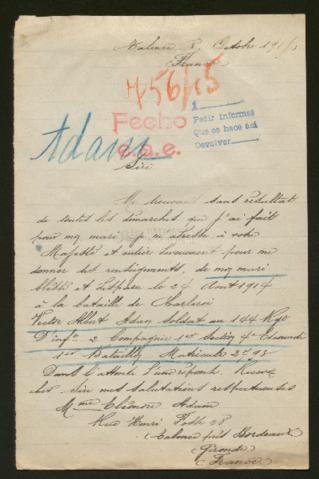 Octobre 191
France
756/15
Á
Pedir informes
que se hace así
Devolver
Fecho
e.o.e.
Adam
Sire
Me trouvant sans résultat
de toutes les démarches que j'ai fait
pour mon mari je m'adresse à votre
Majesté et entier dévouement pour me
donner des renseignements, de mon mari
blessé et disparu le 24 Aout 1914
à la bataille de Charleroi
Victor Albert Adam Soldat au 144
D'infie 2 Compagnie 1er Section 4e Escouade
1er Bataillon Matricule
Dans l'attente d'une réponse, Recevez
cher Sire mes salutations respectueuses
Mme Eléonore Adam
Rue Henri 28
Talence près Bordeaux
Gironde
France